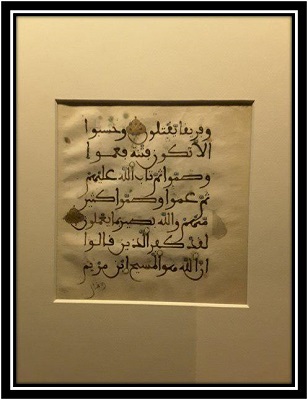 وفريقا تقتلون وحسبوا
ألا تكون فتنة فعموا
وصموا ثم تاب الله عليهم
ثم عموا وصموا كثير
منهم والله بصير بما يعملون
لقد كفر الذين قالوا
إن الله هو المسيح ابن مريم